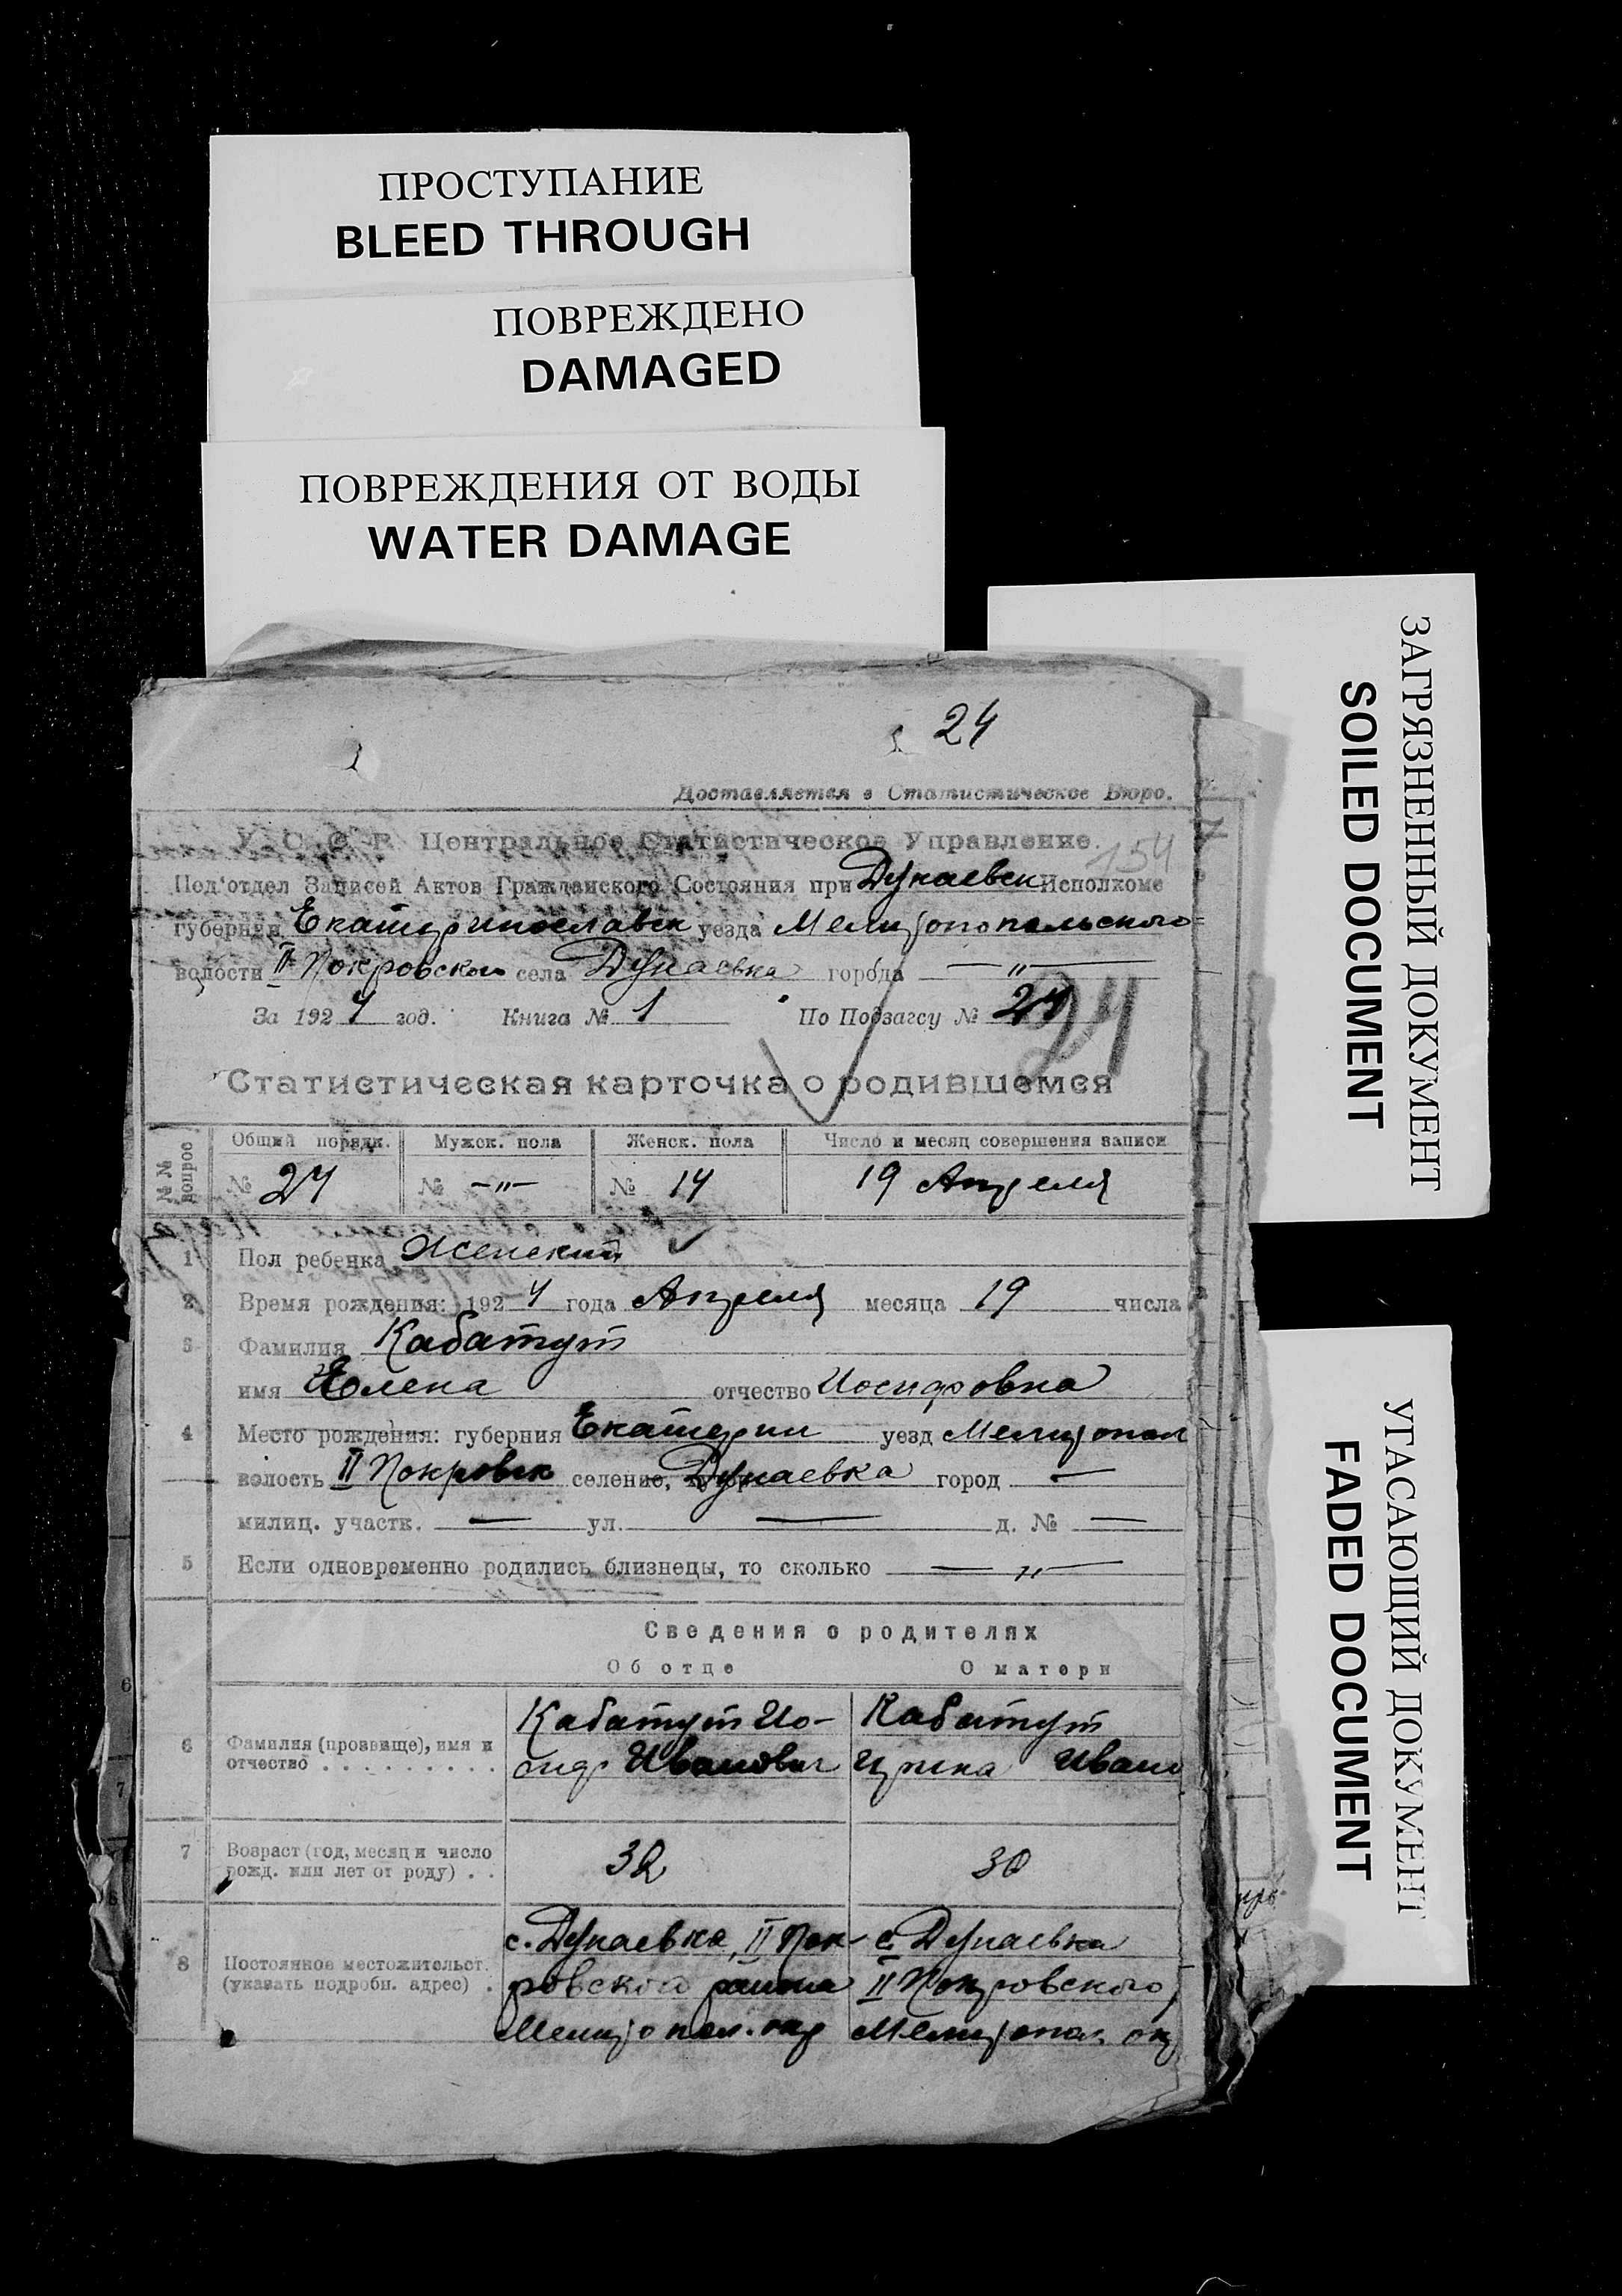 ПРОСТУПАНИЕ
BLEED THROUGH
ПОВРЕЖДЕНО
DAMAGED
ПОВРЕЖДЕНИЯ ОТ ВОДЫ
WATER DAMAGE
ЗАГРЯЗНЕННЫЙ ДОКУМЕНТ
SOILED DOCUMENT
УГАСАЮЩИЙ ДОКУМЕНТ
FADED DOCUMENT
24
Доставляется в Статистическое Бюро.
У. С. С. Р. Центральное Статистическое Управление.
154
Под'отдел Записей Актов Гражданского Состояния при Дунаевск Исполкоме
губернии Екатеринославск уезда Мелитопопольского
волости II Покровской села Дунаевка города — " —
За 1924 год. Книга № 1 По Подзагсу № 24
24
Статистическая карточка о родившемся
№№ вопрос Общий порядк. Мужск. пола Женск. пола Число и месяц совершения записи
№ 24 № -"- № 14 19 Апреля
1 Пол ребенка Женский
2 Время рождения: 1924 года Апреля месяца 19 числа
3 Фамилия Кабатут
имя Елена отчество Иосифовна
4 Место рождения: губерния Екатерин уезд Мелитопол
волость II Покровск селение, Дунаевка город —
милиц. участк. — ул. — д. № —
5 Если одновременно родились близнецы, то сколько — " —
Сведения о родителях
Об отце О матери
6 Фамилия (прозвище), имя и отчество . . . . . . . . .
Кабатут Ио-
сиф Иванович
Кабатут
Ирина Иван
7 Возраст (год, месяц и число рожд. или лет от роду) . .
32 30
8 Постоянное местожительст. (указать подробн. адрес) .
с. Дунаевка, II Пок-
ровского района
Мелитопол. окр
с. Дунаевка
II Покровского
Мелитопол. ок